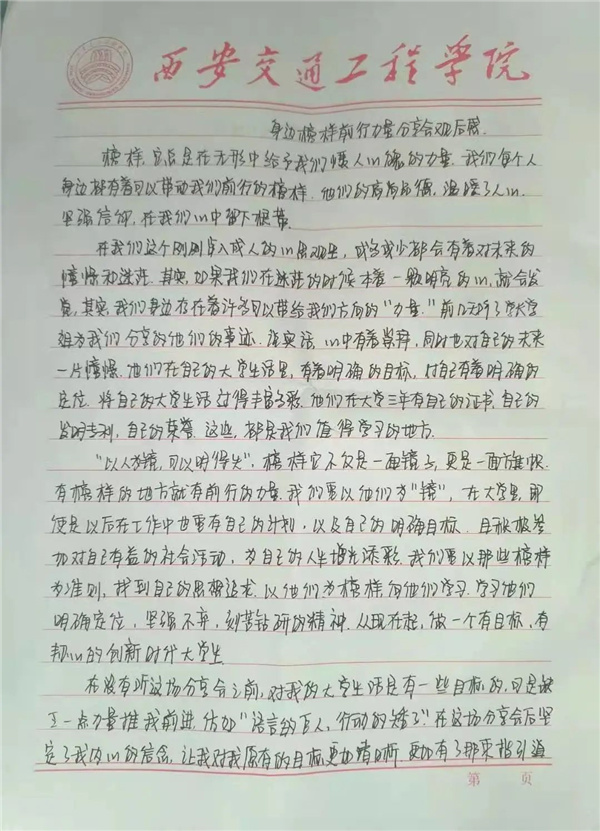 西安交通工程学院
身边榜样前行力量分享会观后感
榜样,它总是在无形中给予我们矮人心魄的力量.我们每个人
身边都有着可以带动我们前行的榜样.他们的高尚品德,温暖了人心.
坚强信仰,在我们心中留下根蒂.
在我们这个刚刚步入成人的心思观里,或多或少都会有着对未来的
憧憬和迷茫.其实,如果我们在迷茫的时候本着一颗明亮的心,就会发
觉,其实,我们身边存在着许多可以带给我们方向的“力量.”前几天听了学长学
姐为我们分享的他们的事迹.说实话,心中有着崇拜,同时也对自己的未来
一片憧憬.他们在自己的大学生活里,有着明确的目标,对自己有着明确的
定位.将自己的大学生活过得丰富多彩.他们在大学三年有自己的证书.自己的
发明专利,自己的荣誉.这些,都是我们值得学习的地方.
“以人为镜,可以明得失”,榜样它不仅是一面镜子,更是一面旗帜.
有榜样的地方就有前行的力量.我们要以他们为“镜”,在大学里,即
使是以后在工作中也要有自己的计划,以及自己的明确目标.且积极参
加对自己有益的社会活动,为自己的人生增光添彩.我们要以那些榜样
为准则,找到自己的思想追求.以他们为榜样向他们学习.学习他们
明确定位,坚强不弃,刻苦钻研的精神.从现在起,做一个有目标,有
韧心的创新时代大学生.
在没有听这场分享会之前,对我的大学生活是有一些目标的,可是缺
乏一点力量推我前进.仿如“语言的巨人,行动的矮子”.在这场分享会后坚
定了我内心的信念,让我对我原有的目标更加清晰.更加有了那来指引道
第 页